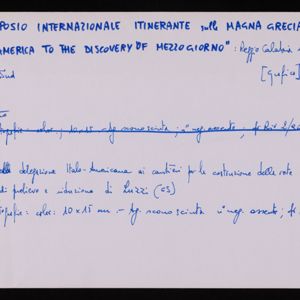 POSIO INTERNAZIONALE ITINERANTE sulla MAGNA GRECIA
AMERICA TO THE DISCOVERY OF MEZZOGIORNO" : Reggio Calabria
Sud
[Grafica]
color, 10x15 fg. sconosciuto, n° neg. assente,
delegazione Italo-Americana ai cantieri per la costruzione della rete
di prelievo e riduzione di Luzzi (CS)
color: 10x15 mm. - fg. sconosciuto n° neg. assente;